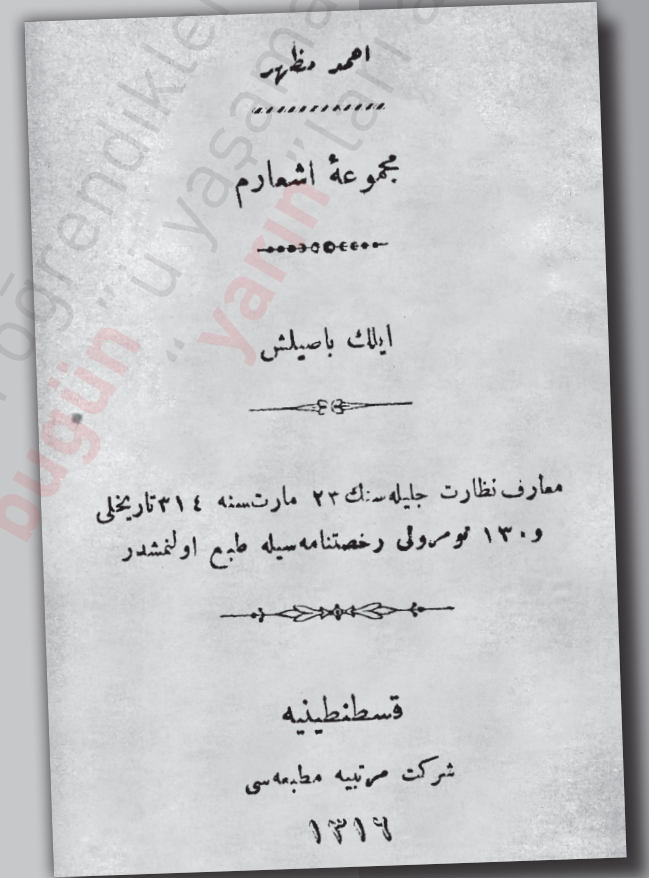 احمد مظهر
مجموعۀ اشعارم
ایلك باصیلش
معارف نظارت جلیله‌سنك ٢٣ مارت سنه ٣١٤ تاریخلی
و ١٣٠ نومرولی رخصتنامه‌سیله طبع اولنمشدر
قسطنطینیه
شركت مرتبیه مطبعه‌سی
١٣١٦
öğrendikler
"ü yaşama
"ları a
bugün
yarın